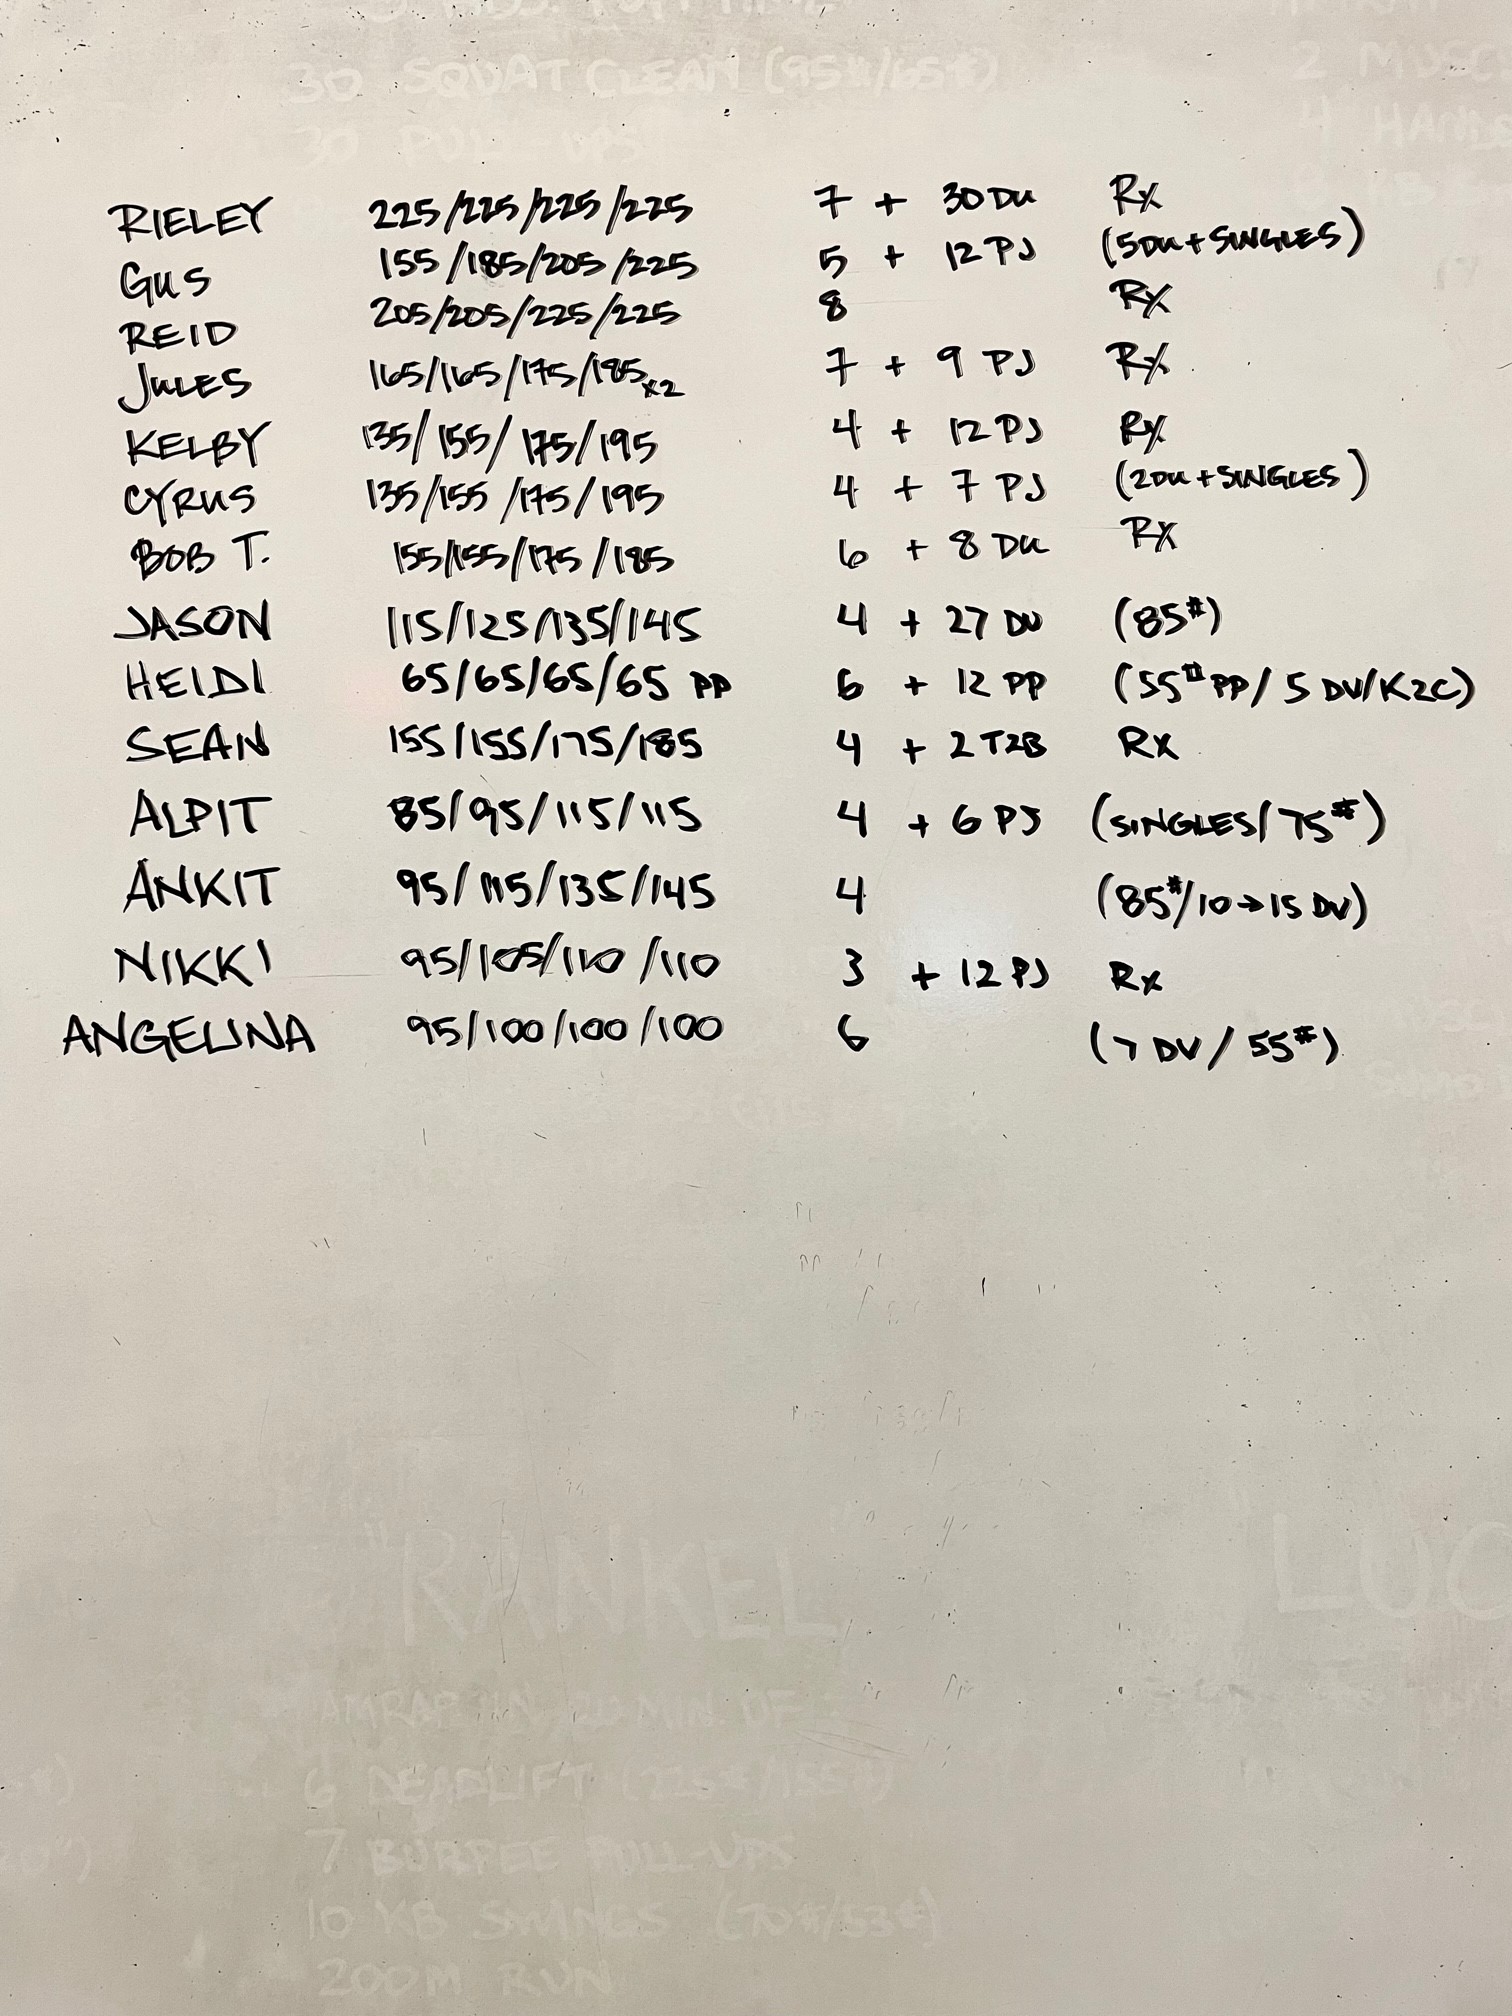 30 SQUAT CLEAN (95#/65#)
30 PULL-UPS
2 MUSC
4 HAND
RIELEY 225/225/225/225 7 + 30 DU Rx
GUS 155/185/205/225 5 + 12 PJ (5DU+SINGLES)
REID 205/205/225/225 8 Rx
JULES 165/165/175/185x2 7 + 9 PJ Rx
KELBY 135/155/175/195 4 + 12 PJ Rx
CYRUS 135/155/175/195 4 + 7 PJ (2DU+SINGLES)
BOB T. 155/155/175/185 6 + 8 DU Rx
JASON 115/125/135/145 4 + 27 DU (85#)
HEIDI 65/65/65/65 PP 6 + 12 PP (55# PP/5 DU/K2C)
SEAN 155/155/175/185 4 + 2 T2B Rx
ALPIT 85/95/115/115 4 + 6 PJ (SINGLES/75#)
ANKIT 95/115/135/145 4 (85#/10→15 DU)
NIKKI 95/105/110/110 3 + 12 PJ Rx
ANGELINA 95/100/100/100 6 (7 DU/55#)
"RANKEL"
LUC
AMRAP IN 20 MIN. OF:
6 DEADLIFT (225#/155#)
7 BURPEE PULL-UPS
10 KB SWINGS (70#/53#)
200M RUN